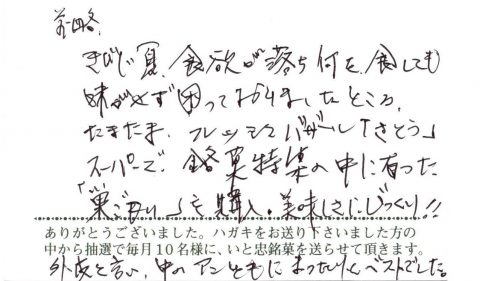 前略、
きびしい夏、食欲が落ち何を食しても
味がせず困っておりましたところ、
たまたま、フレッシュバザール「さとう」
スーパーで、銘菓特集の中に有った
「巣ごもり」を購入。美味しさにびっくり!!
ありがとうございました。ハガキをお送り下さいました方の
中から抽選で毎月10名様に、いと忠銘菓を送らせて頂きます。
外皮と言い、中のアンともにまったりんベストでした。